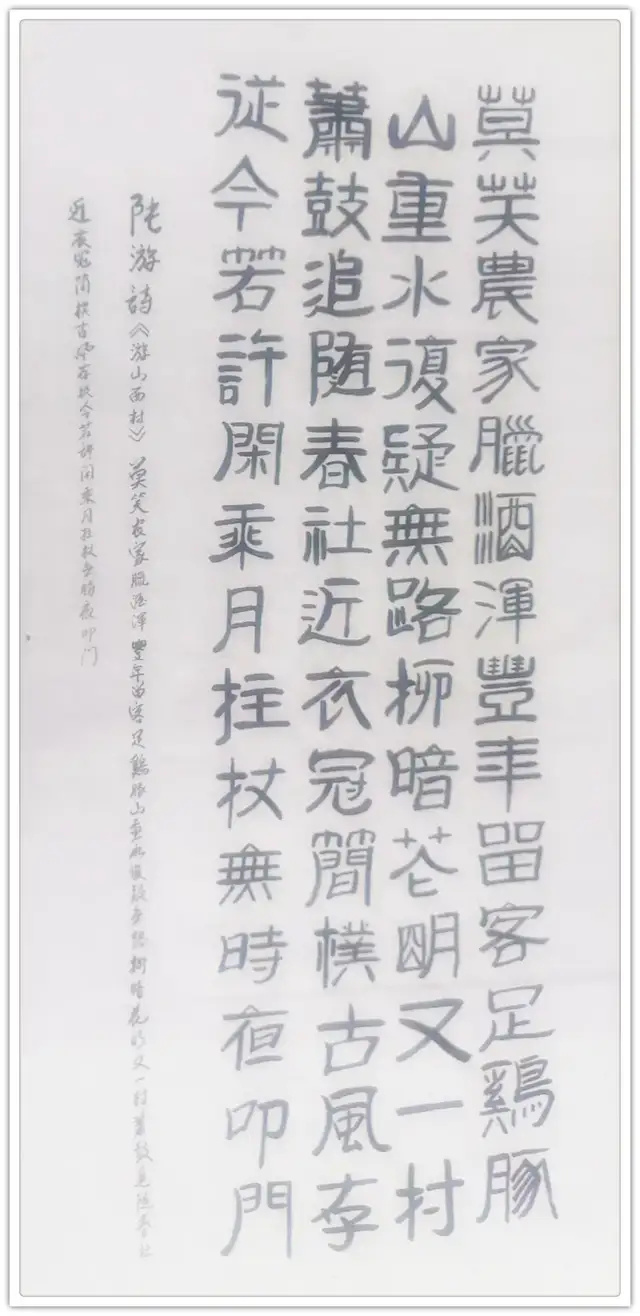 莫笑農家臘酒渾豐年留客足鷄豚
山重水復疑無路柳暗花明又一村
蕭鼓追随春社近衣冠簡樸古風存
從今若許閑乘月拄杖無時夜叩門
陸游詩《游山西村》莫笑农家臘酒渾豐年留客足鷄豚山重水復疑無路柳暗花明又一村蕭鼓追随春社
近衣冠简樸古風存從今若許闲乘月拄杖無時夜叩门